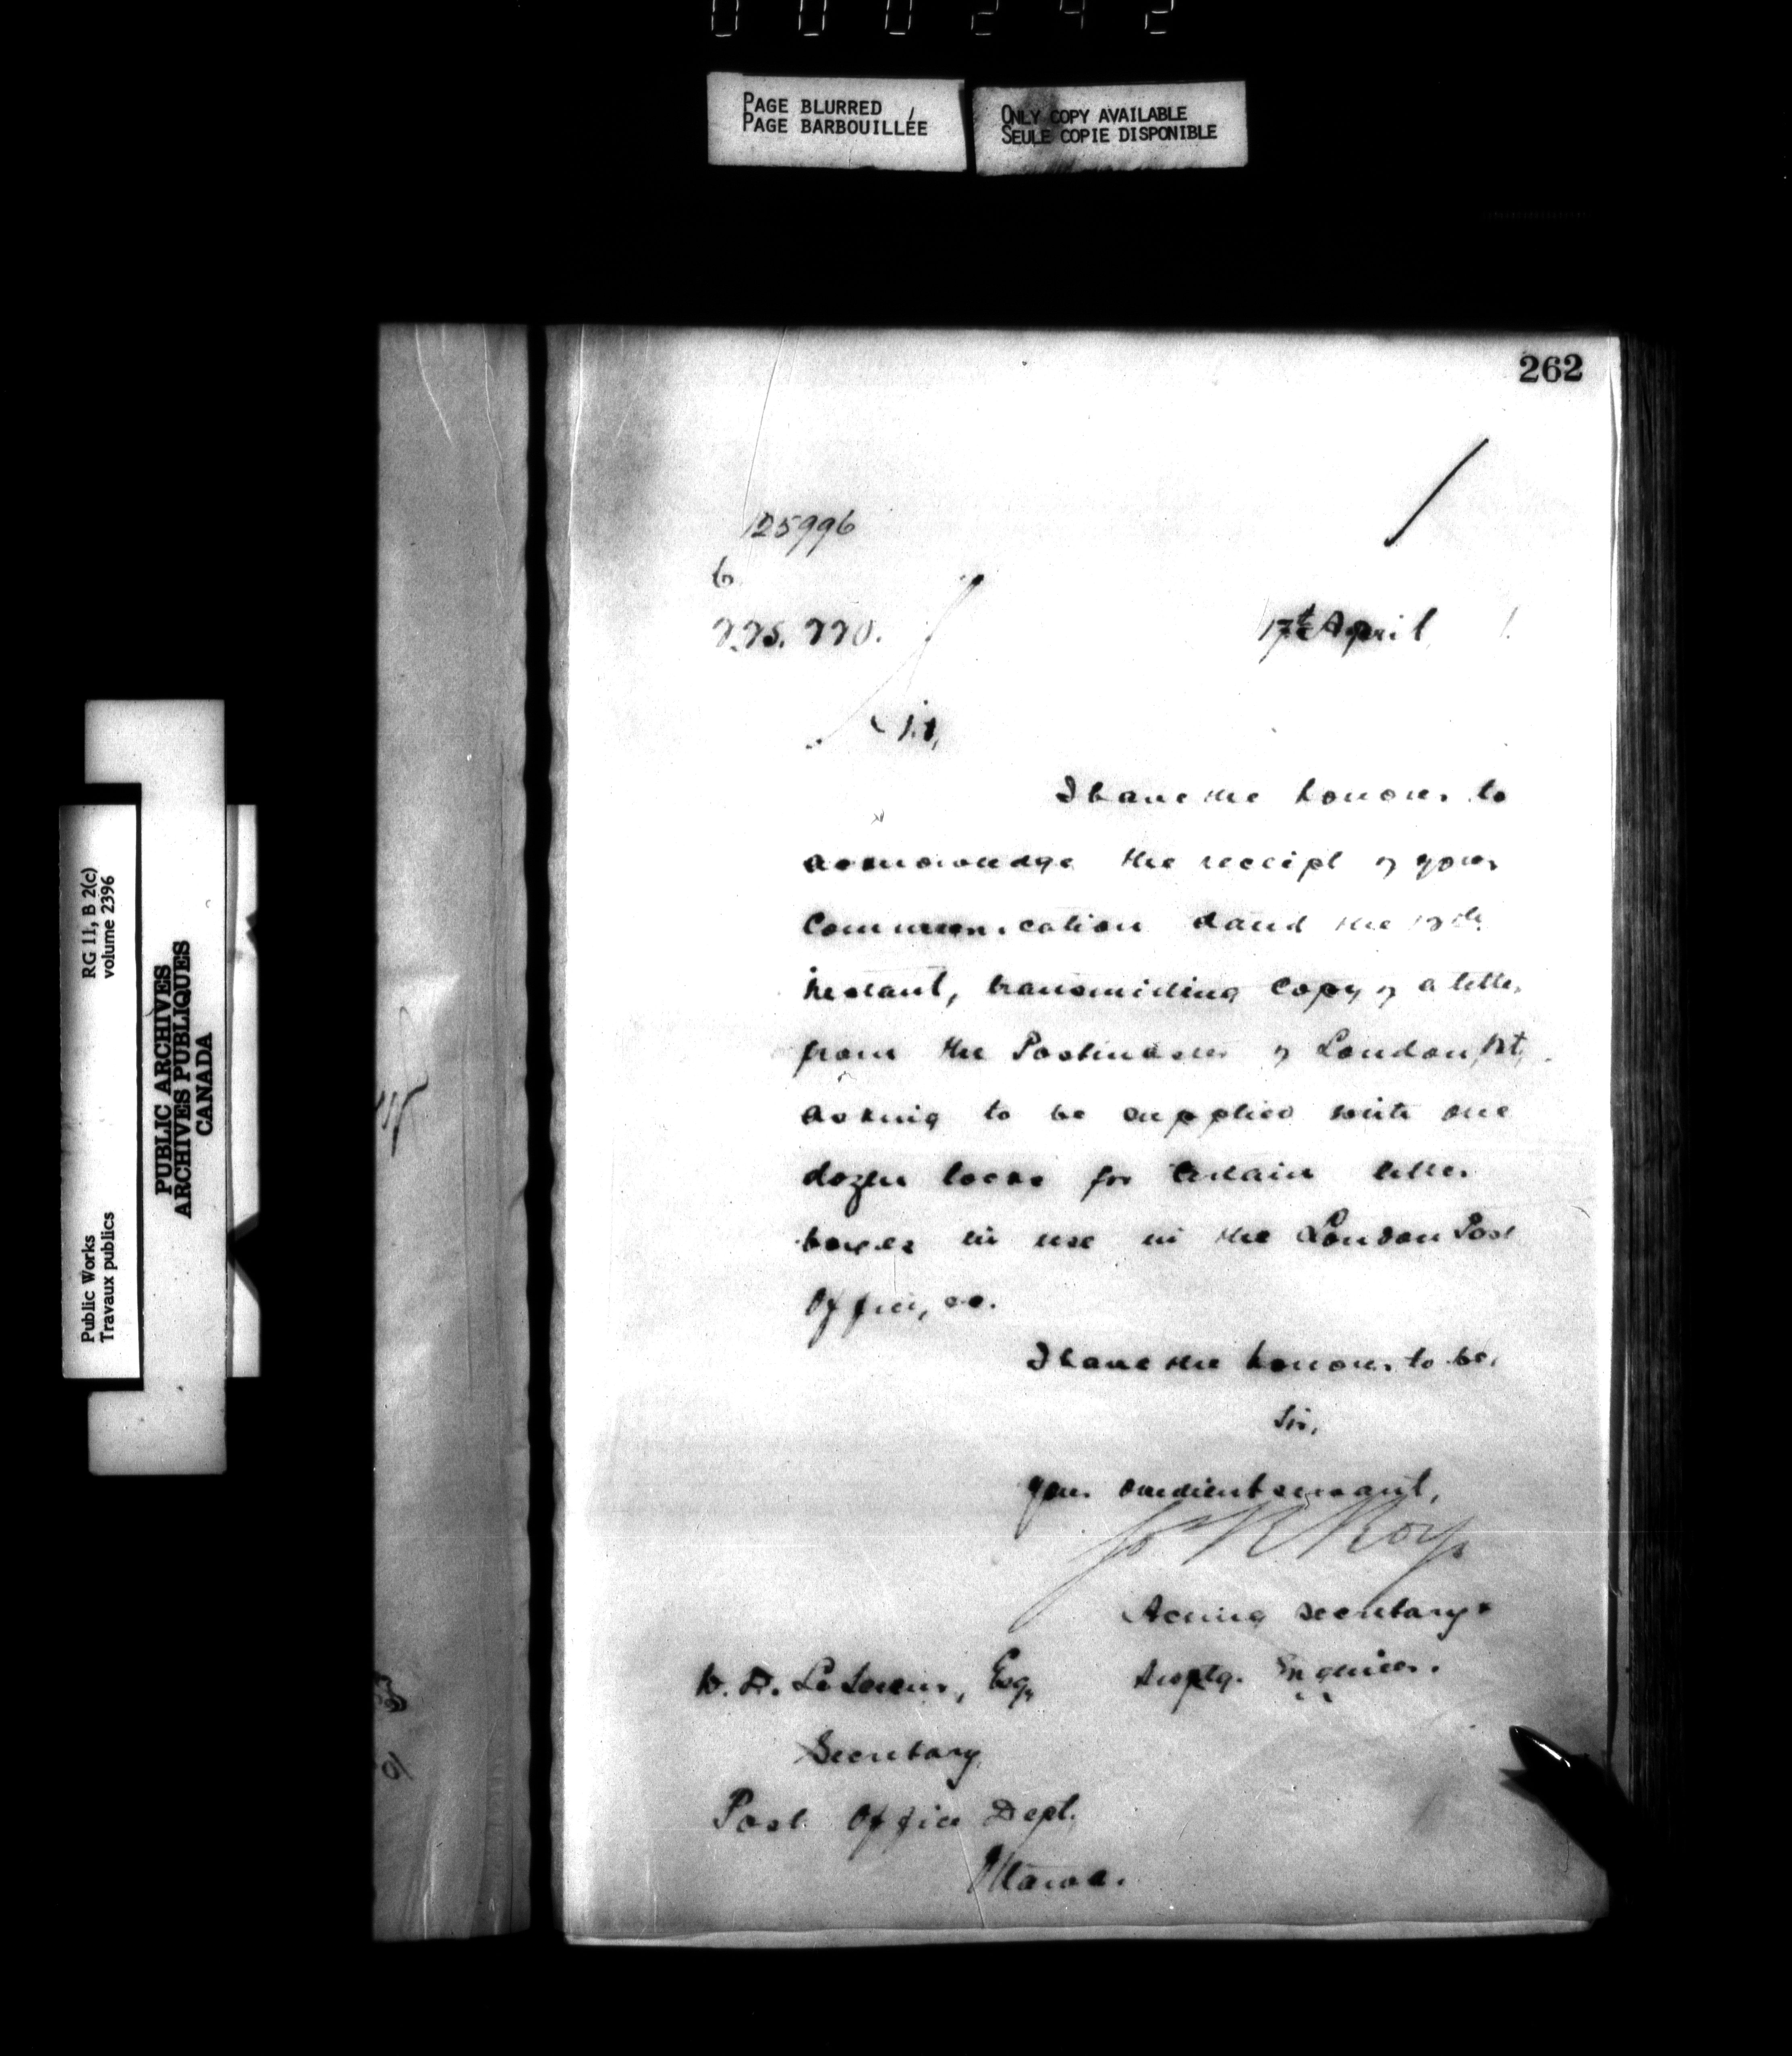 PAGE BLURRED
PAGE BARBOUILLÉE
ONLY COPY AVAILABLE
SEULE COPIE DISPONIBLE
262
125996
17th April
Sir,
I have the honour to
acknowledge the receipt of your
communication dated the
instant, transmitting copy of a letter
from the Postmaster of London, Ont,
asking to be supplied with one
dozen locks for certain letter
boxes in use in the London Post
Office, &c.
I have the honour to be,
Sir,
your obedient servant,
Roy
Acting Secretary &
Esq, Engineer.
Secretary
Post Office Dept.
Ottawa.
RG 11, B 2(c)
volume 2396
Public Works
Travaux publics
PUBLIC ARCHIVES
ARCHIVES PUBLIQUES
CANADA